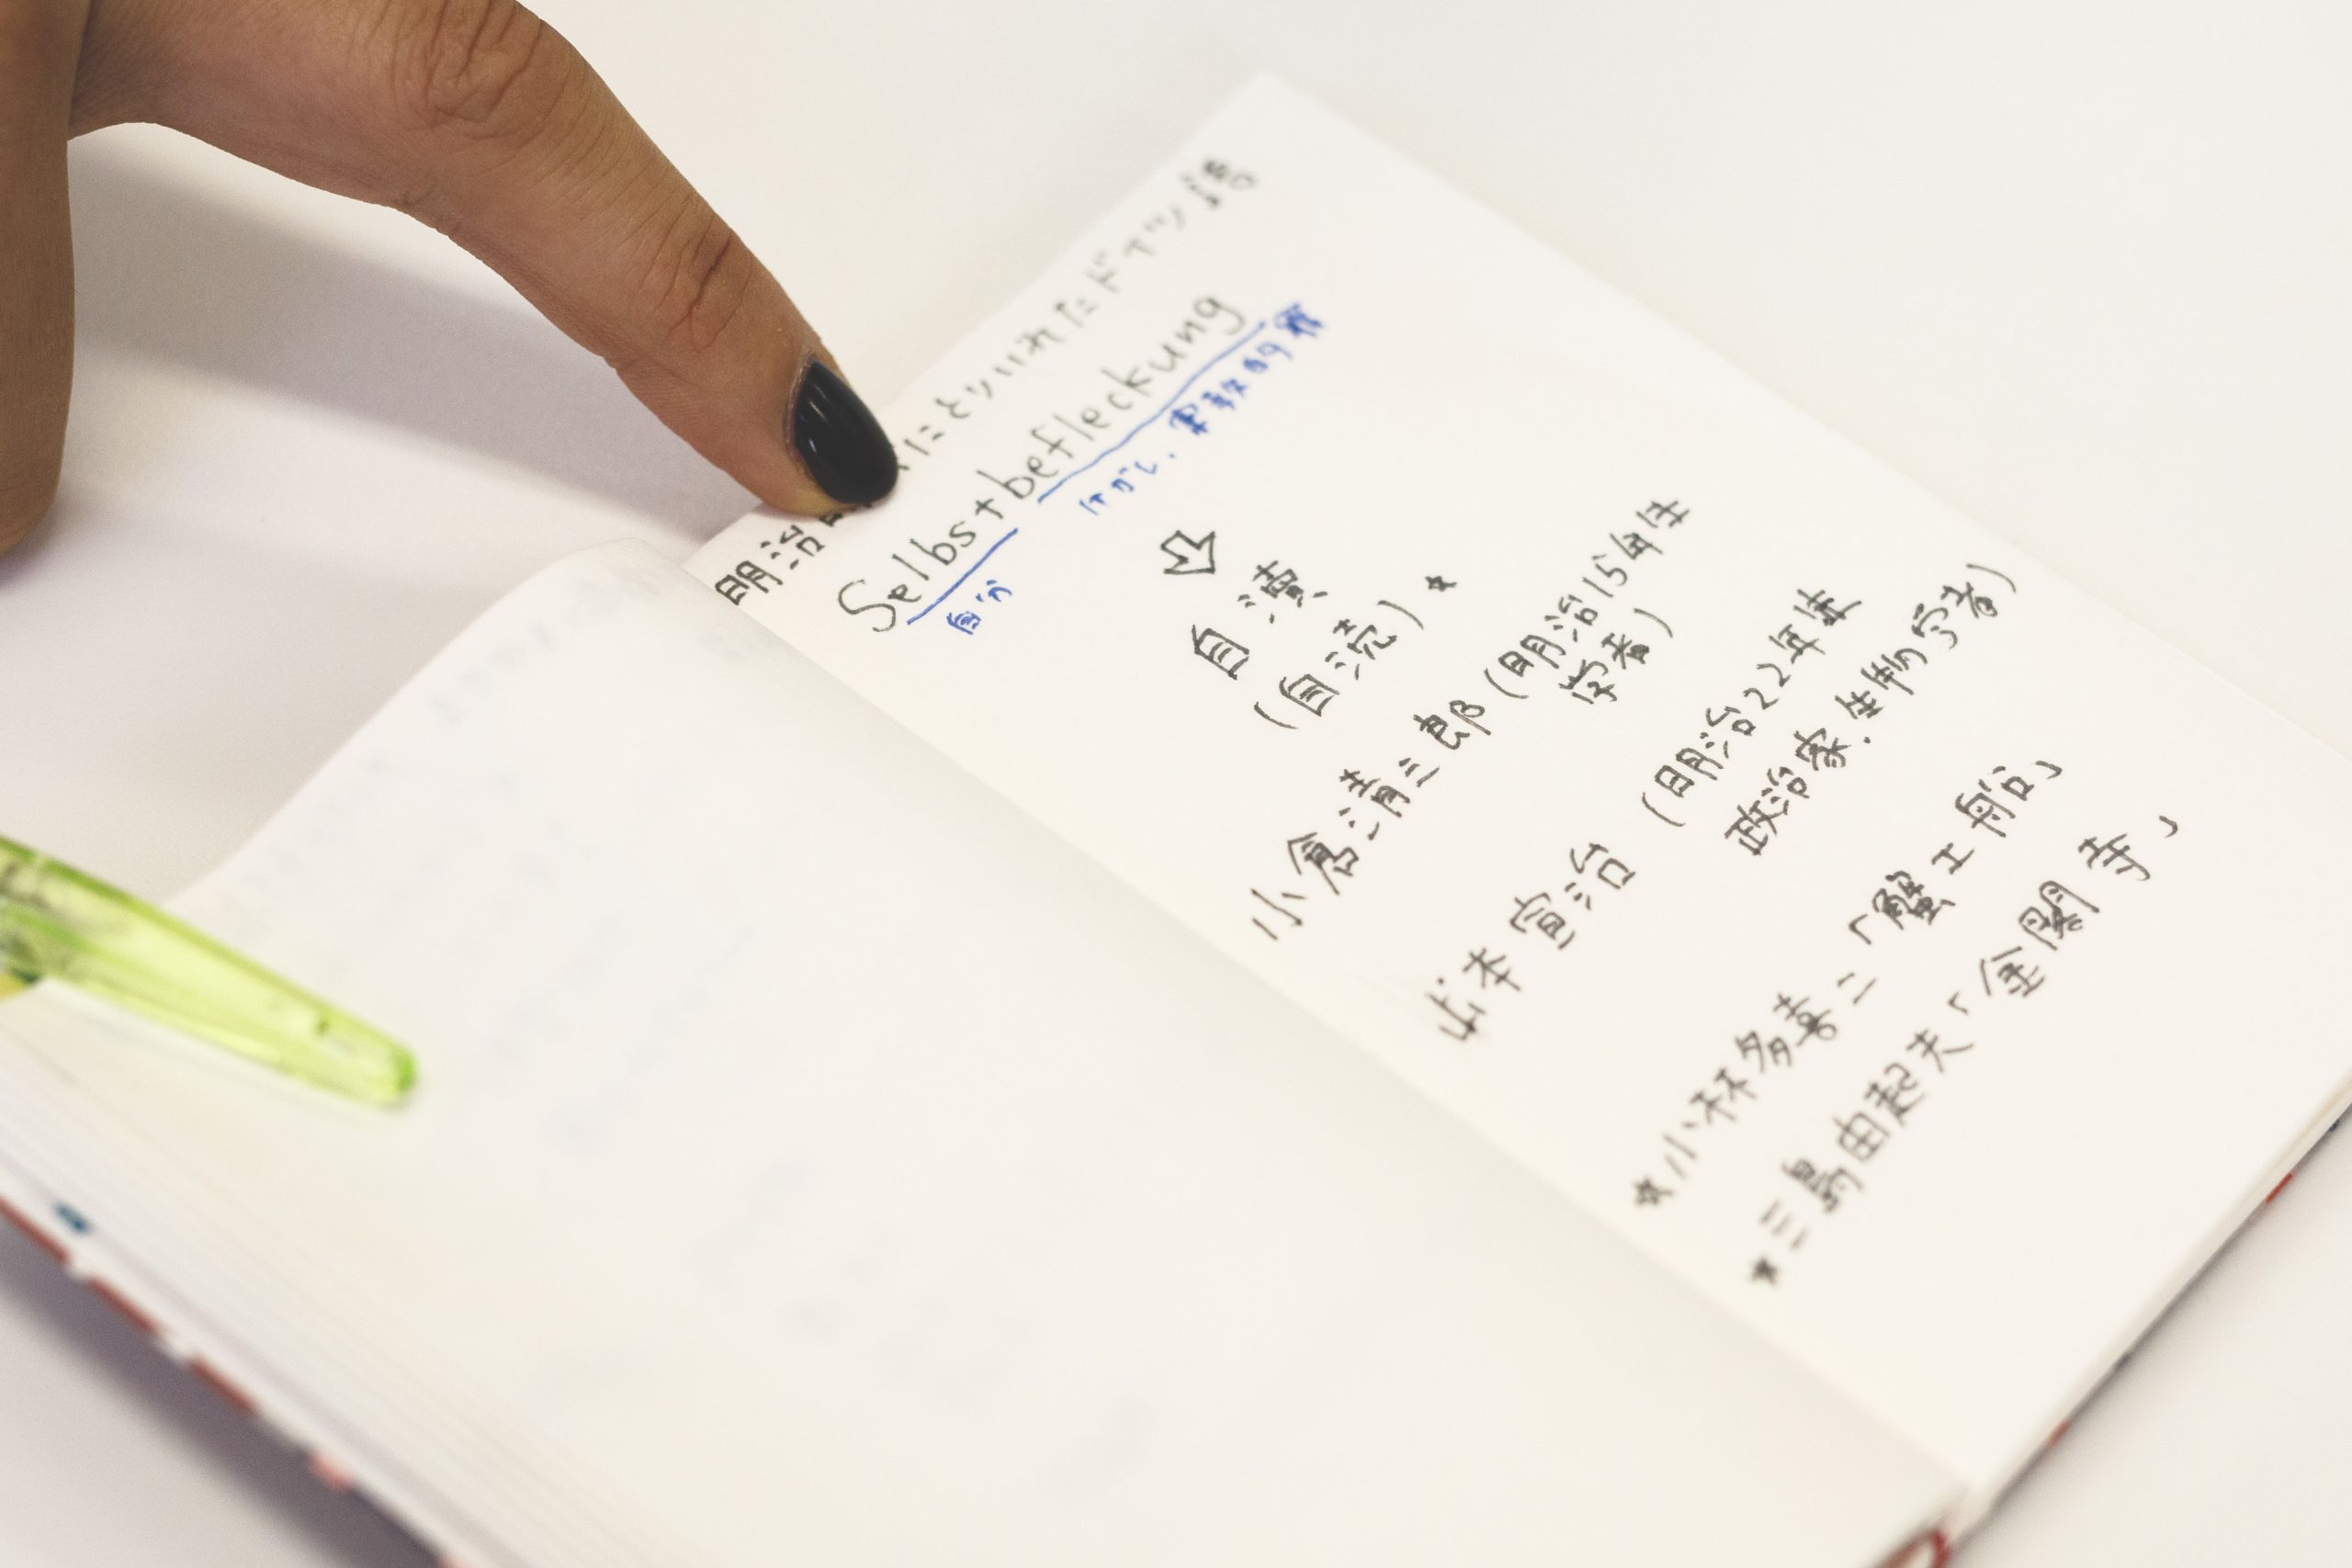 明治 にとりいれたドイツ語
Selbstbefleckung
自分
けがし．宗教的罪
自瀆
(自涜)☆
小倉清三郎 (明治15年生
学者)
山本宣治 (明治22年生
政治家．生物学者)
☆小林多喜二「蟹工船」
★三島由起夫「金閣寺」